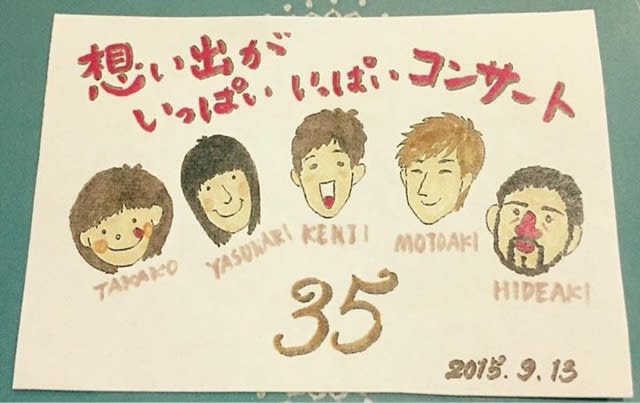 想い出が
いっぱい いっぱい コンサート
TAKAKO
YASUNARI
KENJI
MOTOAKI
HIDEAKI
35
2015. 9. 13